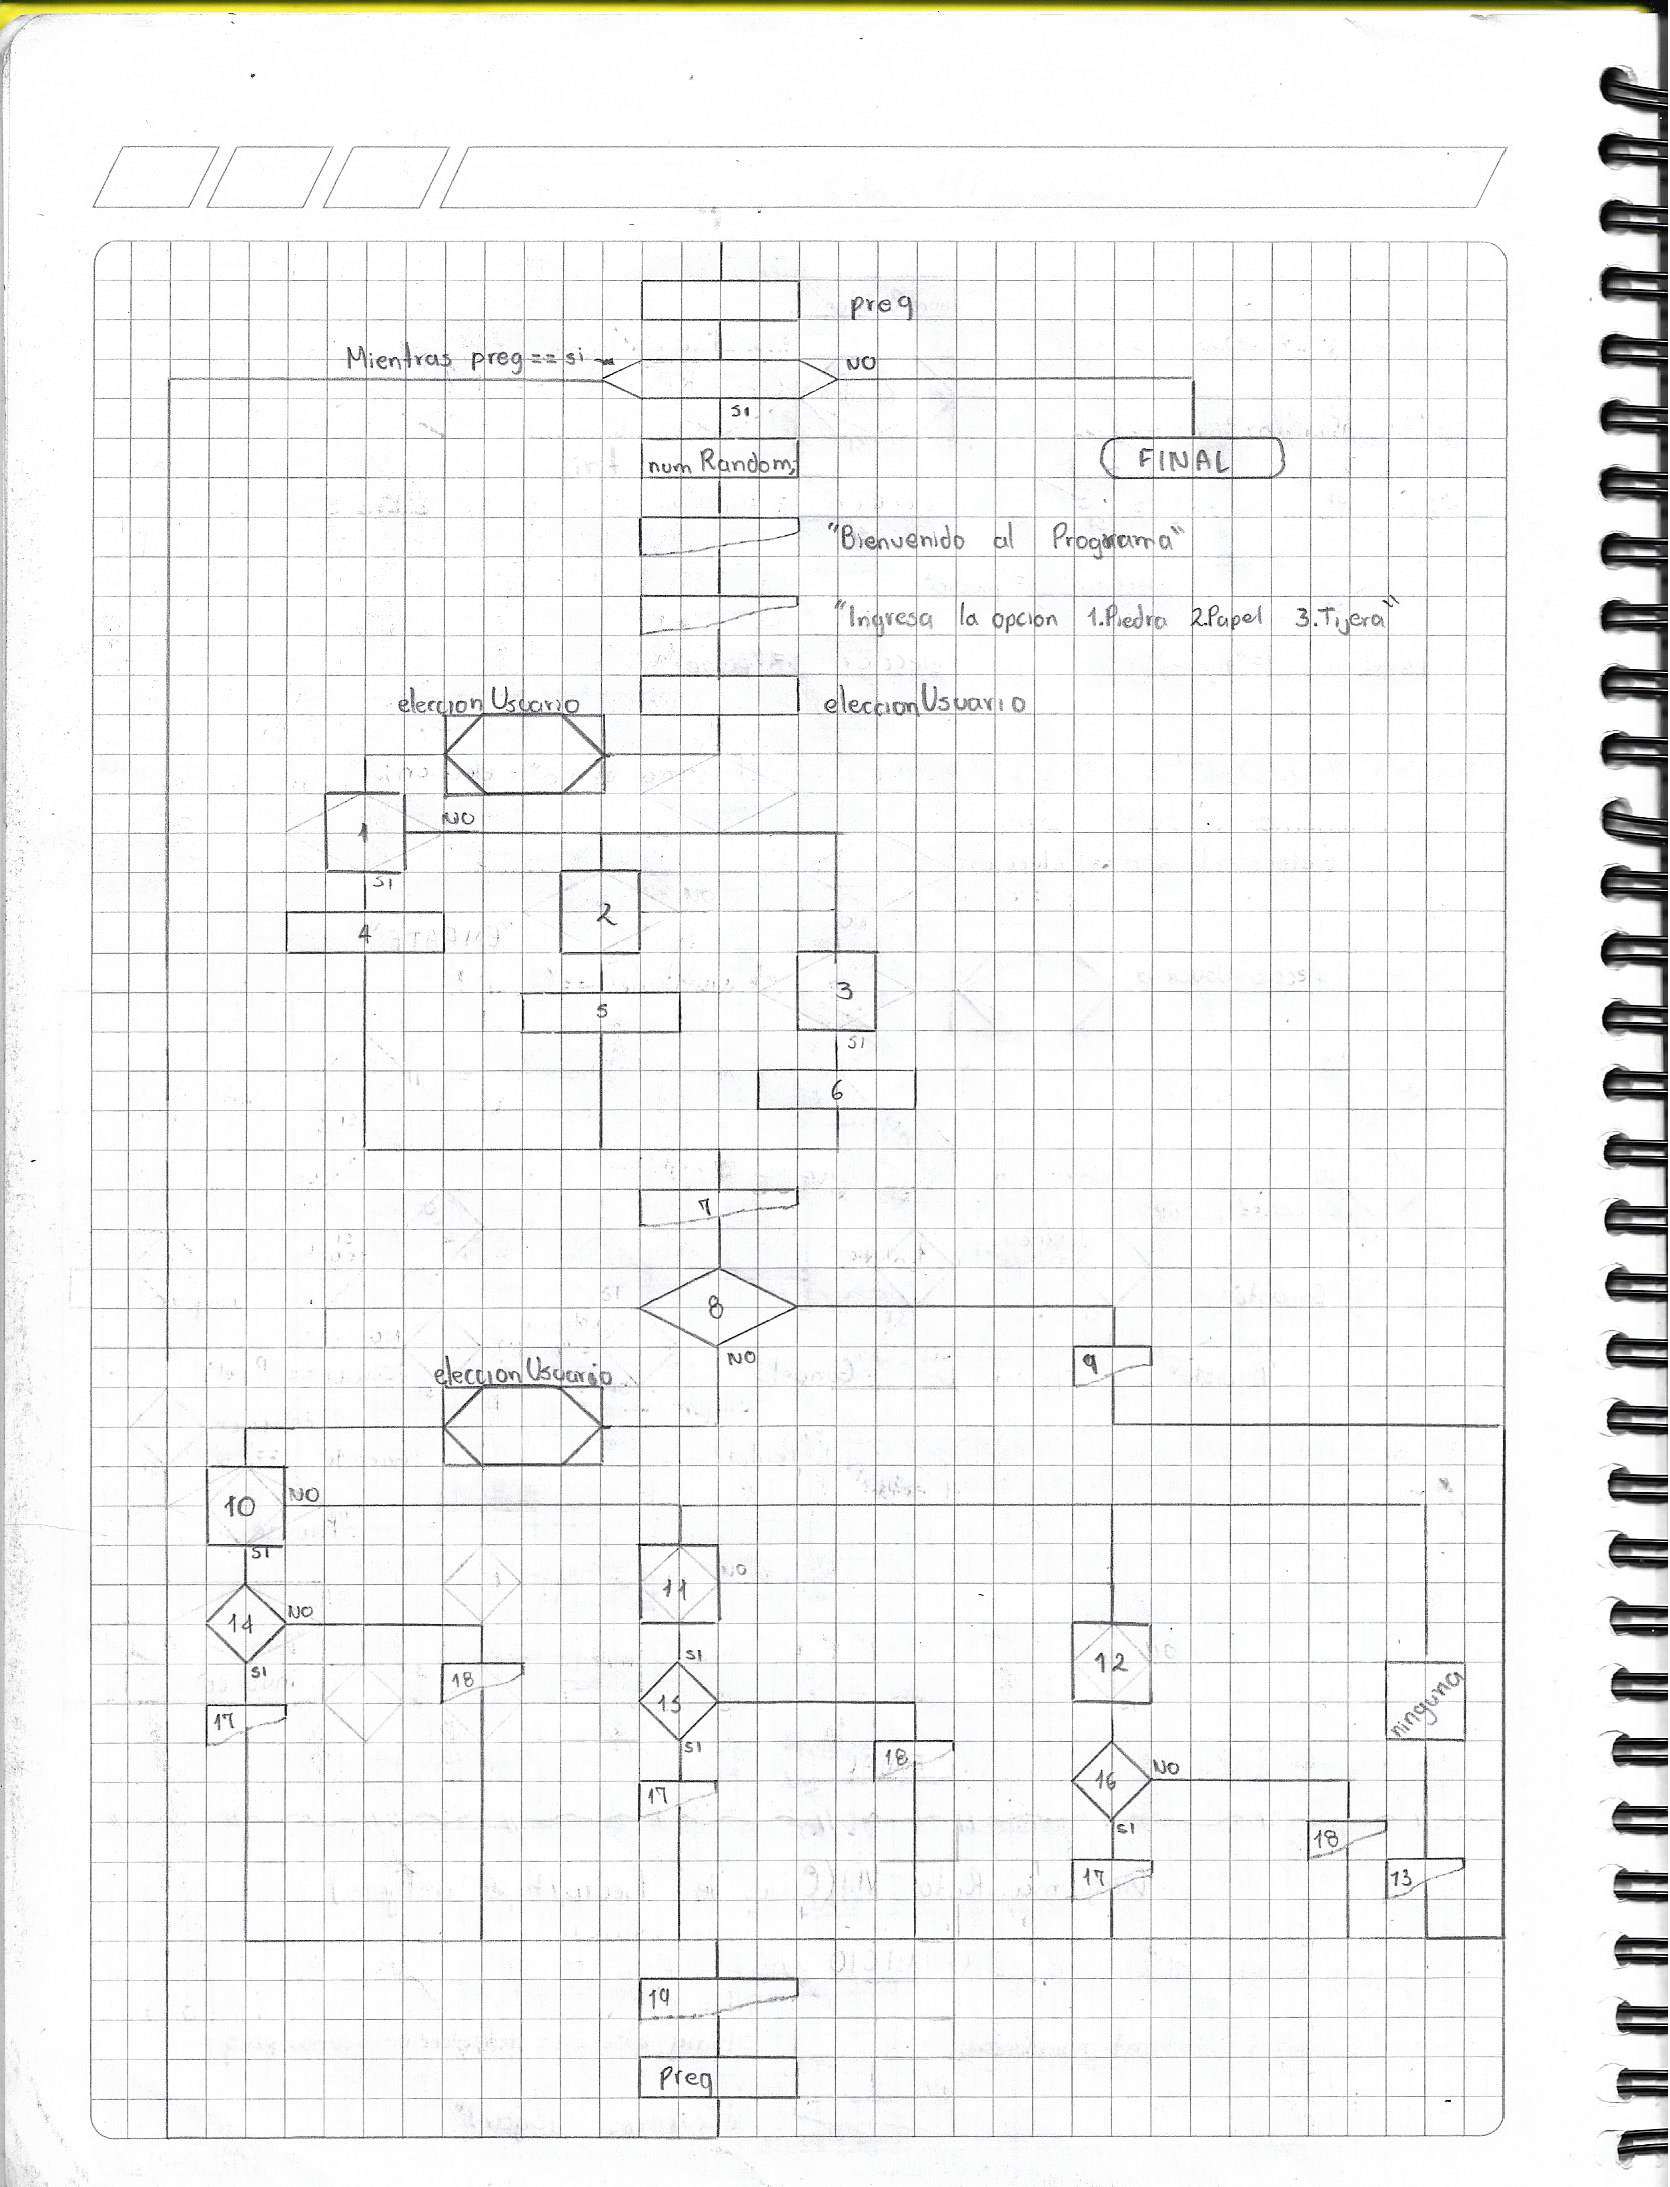 preg
Mientras preg == si
NO
si
num Random;
FINAL
"Bienvenido al Programa"
"Ingresa la opcion 1.Piedra 2.Papel 3.Tijera"
eleccionUsuario
eleccionUsuario
1
NO
SI
4
2
5
3
SI
6
7
8
NO
9
eleccionUsuario
10
NO
SI
11
NO
12
ninguna
14
NO
SI
18
17
SI
15
SI
18
17
16
NO
SI
18
17
13
19
Preg